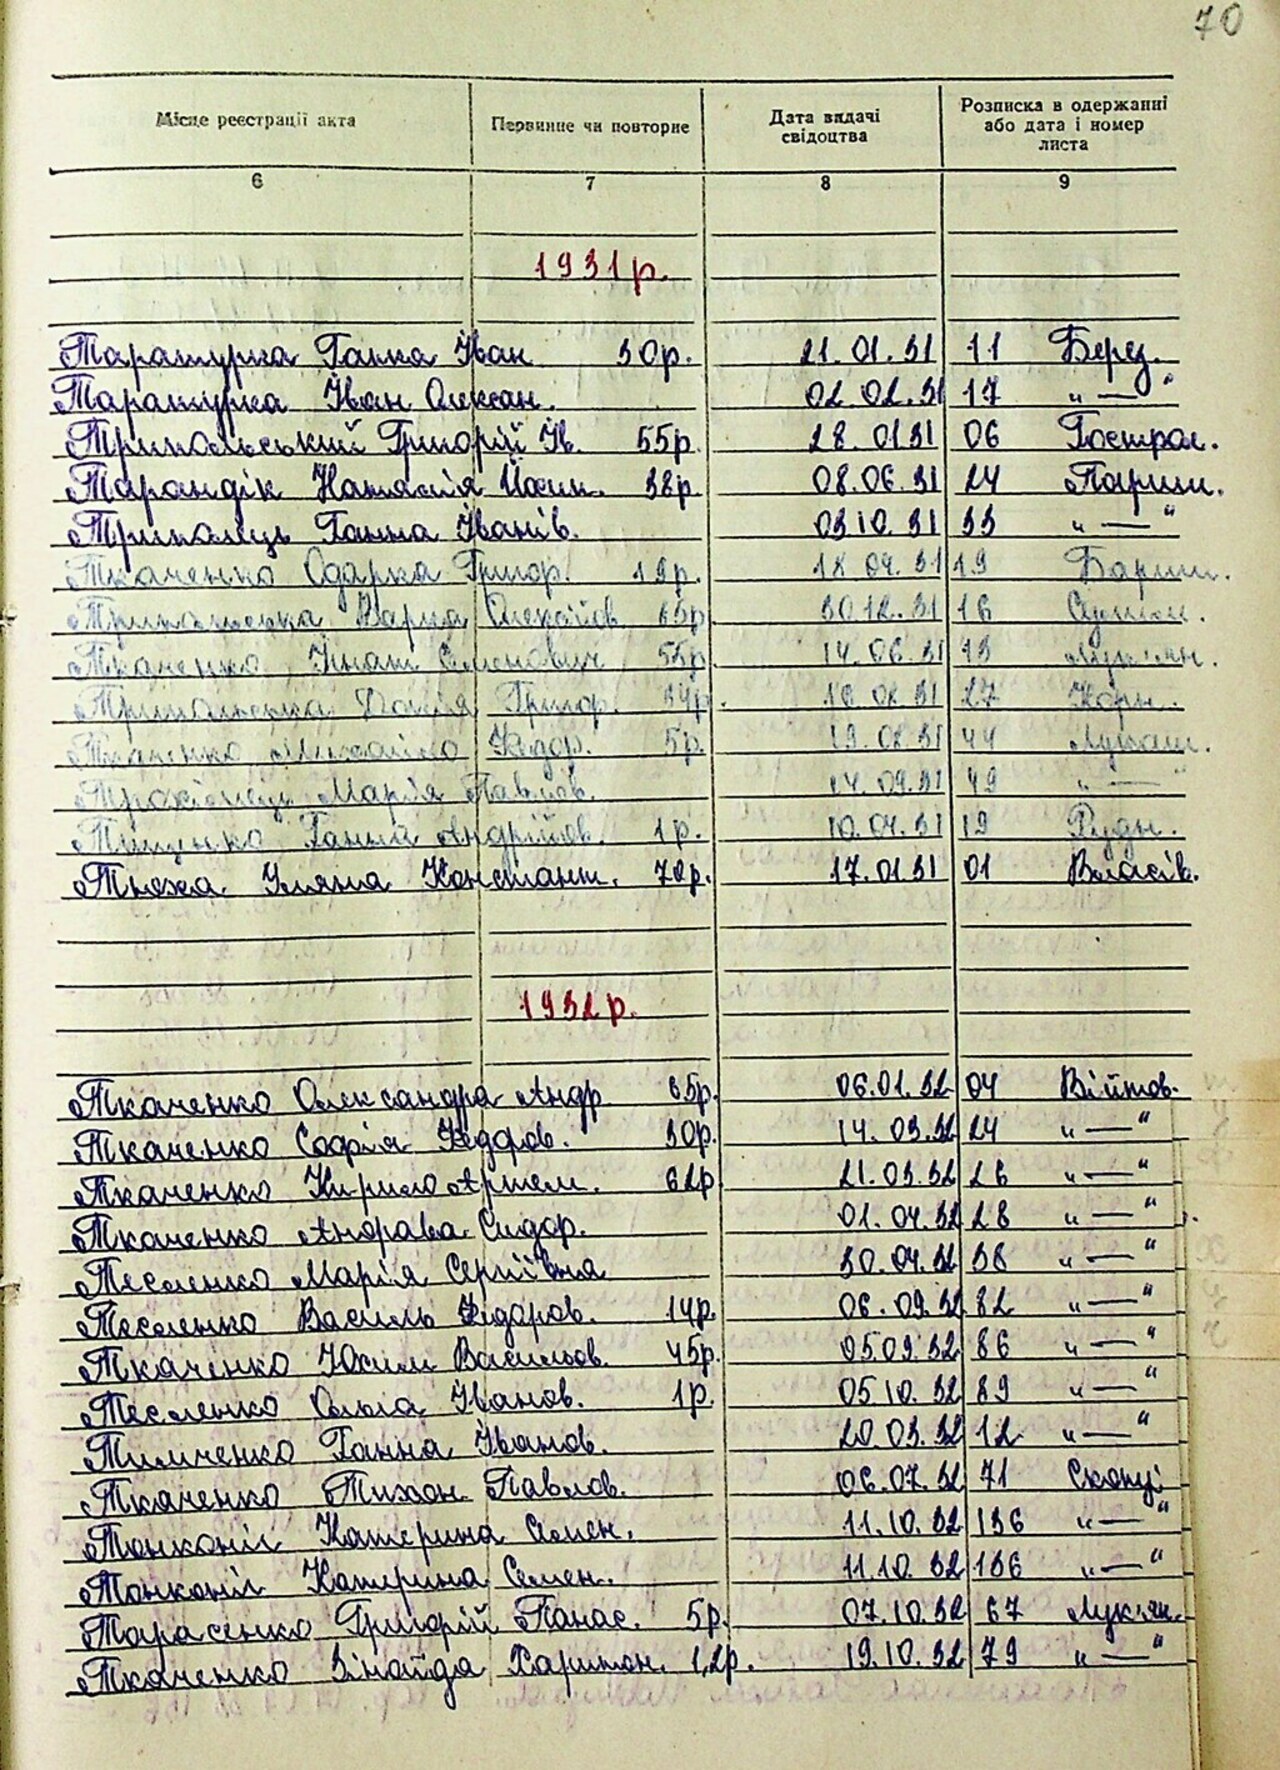 70
Місце реєстрації акта Первинне чи повторне Дата видачі свідоцтва Розписка в одержанні або дата і номер листа
6 7 8 9
1931 р.
Тарашурка Ганна Іван 30р. 21.01.31 11 Берез.
Тарашурка Іван Олексан. 02.02.31 17 „—"
Трипольський Григорій Ів. 55р. 28.01 31 06 Гостро
Тарандік Наталія Йосип. 38р. 08.06.31 24 Париш.
Ганна Іванів. 03 10.31 33 „—"
Ткаченко Одарка Григор. 19р. 18 04.31 19 Бариш.
Олексіїв 65р. 30.12.31 16
Ткаченко Гнат Семенович 55р. 14.06.31 13 Лук'ян.
Трипольська Григор. 18.02.31 27 Корн.
Ткаченко Михайло Федор. 5р. 19.08.31 44 Лукаш.
Марія Павлів. 14.09.31 49 „—"
Ганна Андрійов. 1р. 10.04.31 19 Рудн.
Уляна Констант. 70р. 17.01 31 01 Власів.
1932 р.
Ткаченко Олександра Андр 65р. 06.01.32 04 Війтов.
Ткаченко Софія Федоров. 30р. 14.03.32 24 „—"
Ткаченко Кирило Артем. 62р 21.03.32 26 „—"
Ткаченко Сидор. 01.04.32 28 „—"
Тесленко Марія Сергіївна 30.04.32 38 „—"
Тесленко Василь Федоров. 14р. 06.09.32 82 „—"
Ткаченко Юхим Васильов. 45р. 05.09.32 86 „—"
Тесленко Ольга Іванов. 1р. 05.10.32 89 „—"
Тимченко Ганна Іванов. 20.03.32 12 „—"
Ткаченко Тихон Павлов. 06.07.32 71 Скопці
Тонконіг Катерина Семен. 11.10.32 136 „—"
Тонконіг Катерина Семен. 11.10.32 136 „—"
Тарасенко Григорій Панас. 5р. 07.10.32 67 Лук'ян.
Ткаченко Зінаїда Харитон. 1,2р. 19.10.32 79 „—"